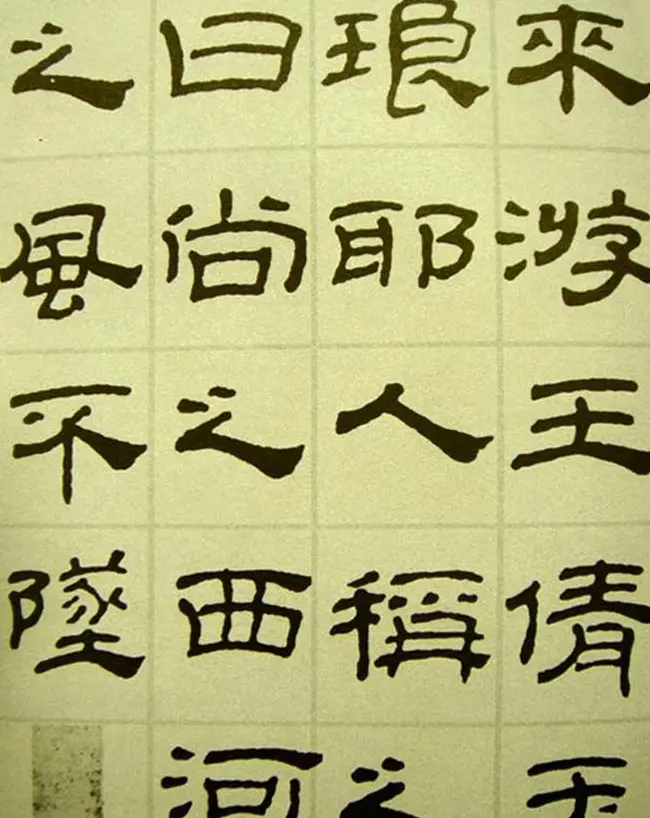 來游王倩玉
琅耶人稱之
曰尚之西河
之風不墜